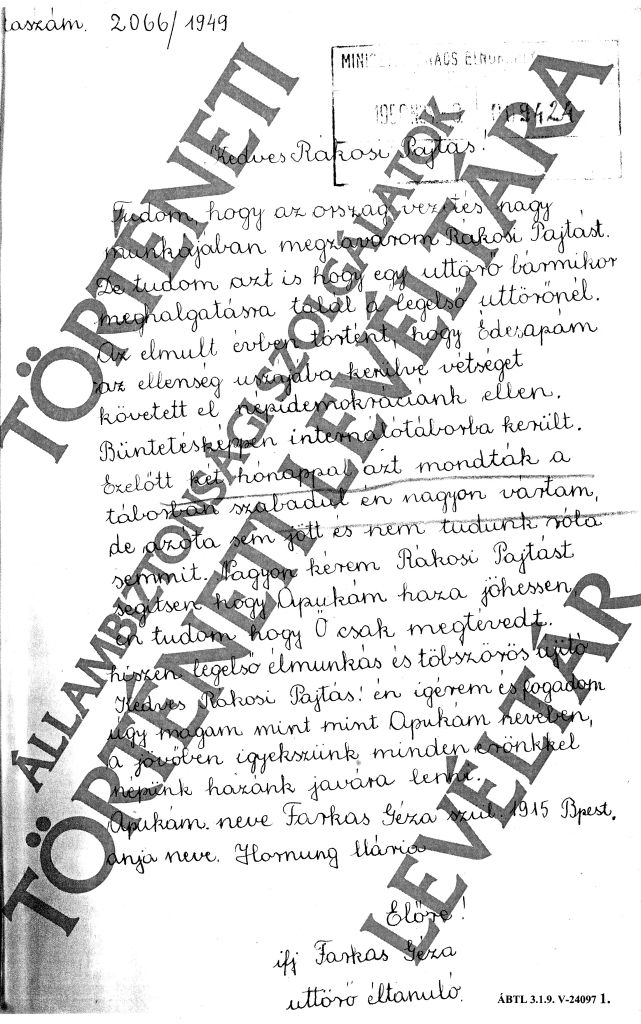 taszám. 2066/1949
MINISZ RÁCS ELNÖK
009424
Kedves Rákosi Pajtás!
Tudom, hogy az ország vezetés nagy
munkájában megzavarom Rákosi Pajtást.
De tudom azt is hogy egy uttörő bármikor
meghalgatásra talál a legelső uttörőnél.
Az elmult évben történt, hogy Édesapám
az ellenség uszájába kerülve vétséget
követett el népidemokráciánk ellen.
Büntetésképpen internálótáborba került.
Ezelőtt két hónappal azt mondták a
táborban szabadul én nagyon vártam,
de azóta sem jött és nem tudunk róla
semmit. Nagyon kérem Rákosi Pajtást
segitsen hogy Apukám haza jöhessen,
én tudom hogy Ő csak megtévedt.
hiszen legelső élmunkás és töbszörös ujitó
Kedves Rákosi Pajtás! én igérem és fogadom
úgy magam mint mint Apukám nevében,
a jövőben igyekszünk minden erőnkkel
népünk hazánk javára lenni.
Apukám. neve Farkas Géza szül. 1915 Bpest.
anja neve. Hornung Mária
Előre!
ifj Farkas Géza
uttörő éltanuló.
ÁBTL 3.1.9. V-24097 1.
ÁLLAMBIZTONSÁGI SZOLGÁLATOK
TÖRTÉNETI LEVÉLTÁRA
TÖRTÉNETI
LEVÉLTÁR